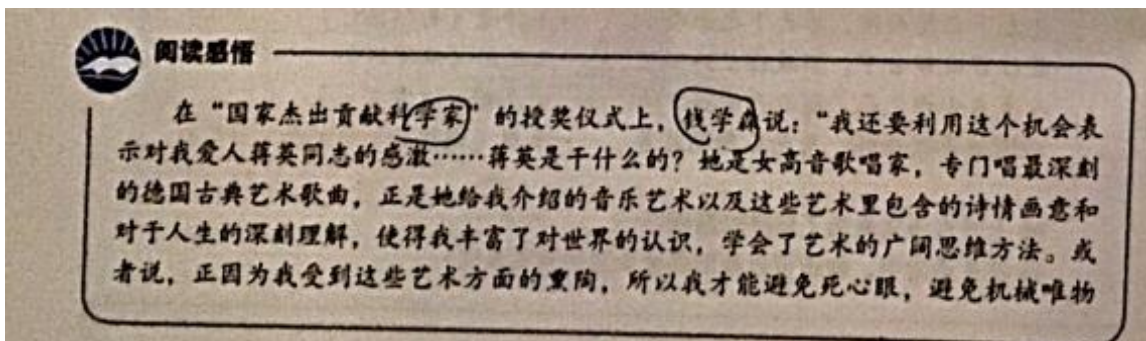 阅读感悟
在“国家杰出贡献科学家”的授奖仪式上，钱学森说：“我还要利用这个机会表
示对我爱人蒋英同志的感激……蒋英是干什么的？她是女高音歌唱家，专门唱最深刻
的德国古典艺术歌曲，正是她给我介绍的音乐艺术以及这些艺术里包含的诗情画意和
对于人生的深刻理解，使得我丰富了对世界的认识，学会了艺术的广阔思维方法。或
者说，正因为我受到这些艺术方面的熏陶，所以我才能避免死心眼，避免机械唯物